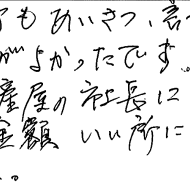 もあいさつ、言
がよかったです。
産屋の社長に
金額 いい所に